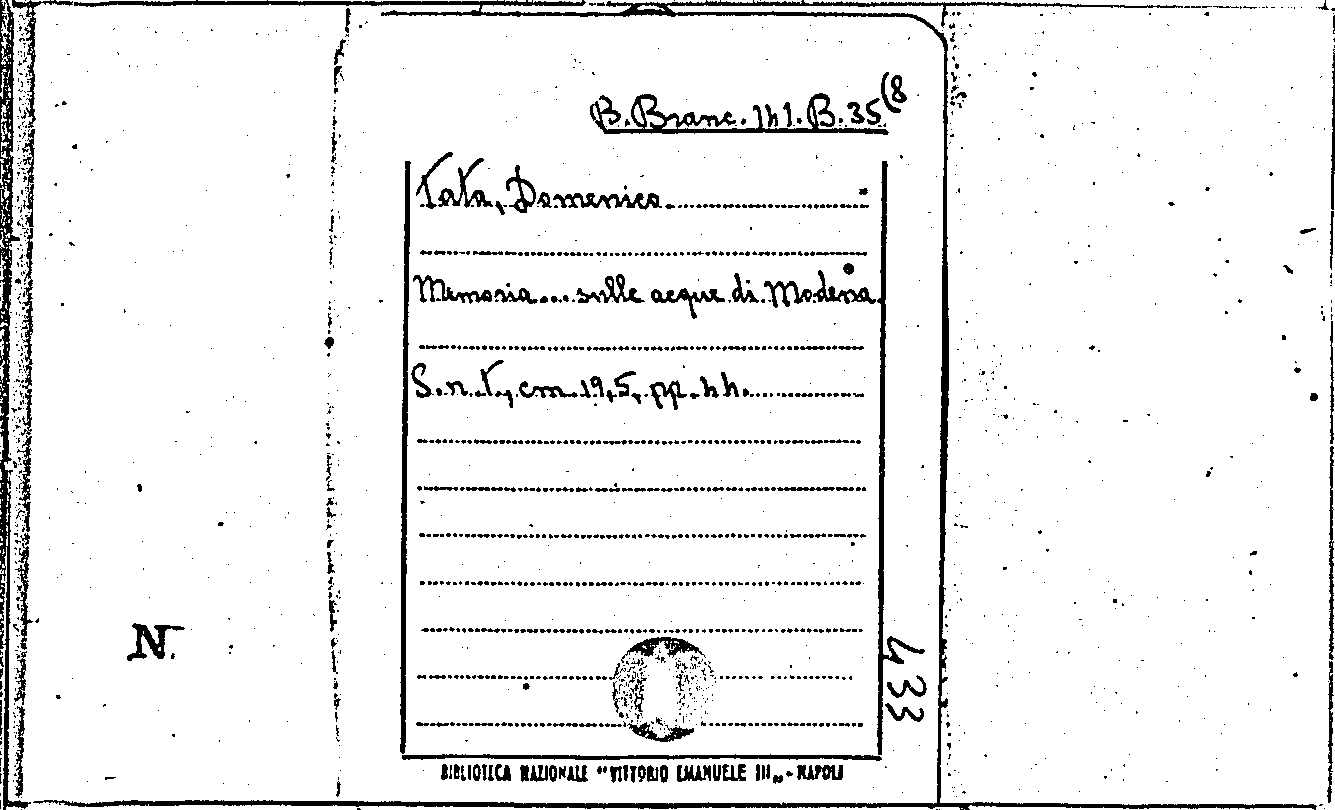 B. Branc. 141. B. 35(8
Tata, Domenico
Memoria... sulle acque di Modena.
S. n. t., cm. 19,5, pp. 44.
N.
433
BIBLIOTECA NAZIONALE "VITTORIO EMANUELE III„ - NAPOLI